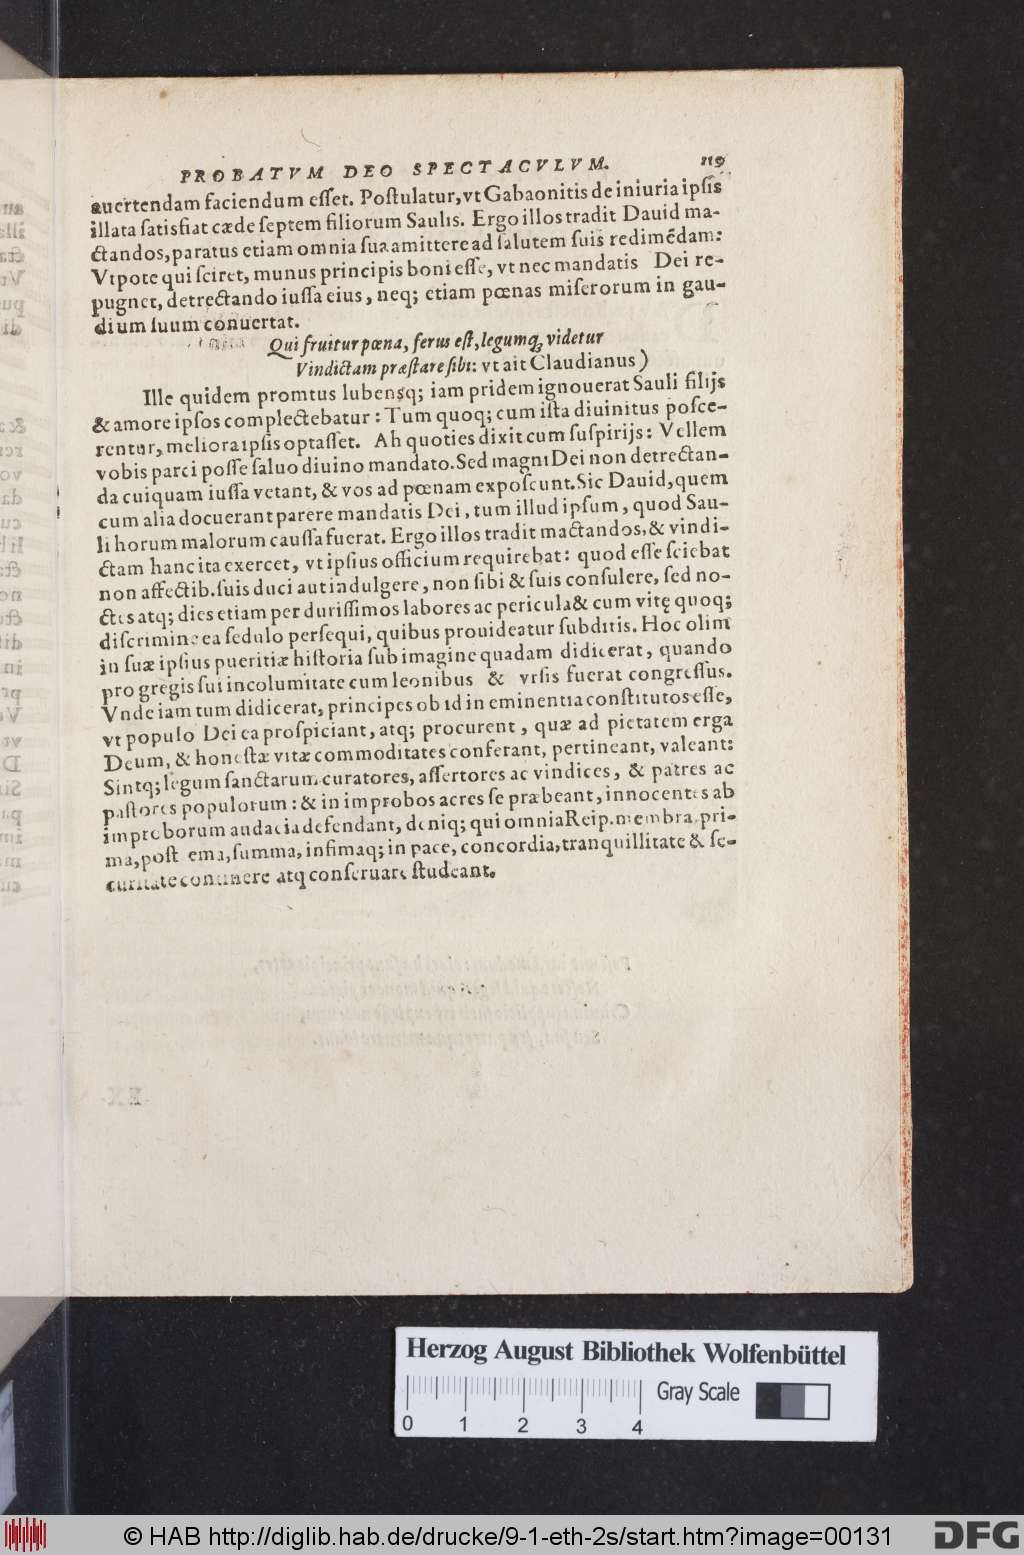 PROBATVM DEO SPECTACVLVM. 119
auertendam faciendum eſſet. Poſtulatur, vt Gabaonitis de iniuria ipſis
illata ſatisfiat cæde ſeptem filiorum Saulis. Ergo illos tradit Dauid ma-
ctandos, paratus etiam omnia ſua amittere ad ſalutem ſuis redimẽdam:
Vtpote qui ſciret, munus principis boni eſſe, vt nec mandatis Dei re-
pugnet, detrectando iuſſa eius, neq; etiam pœnas miſerorum in gau-
dium ſuum conuertat.
Qui fruitur pœna, ferus eſt, legumq; videtur
Vindictam præſtare ſibi: vt ait Claudianus)
Ille quidem promtus lubensq; iam pridem ignouerat Sauli filijs
& amore ipſos complectebatur: Tum quoq; cum iſta diuinitus poſce-
rentur, meliora ipſis optaſſet. Ah quoties dixit cum ſuſpirijs: Vellem
vobis parci poſſe ſaluo diuino mandato. Sed magni Dei non detrectan-
da cuiquam iuſſa vetant, & vos ad pœnam expoſcunt. Sic Dauid, quem
cum alia docuerant parere mandatis Dei, tum illud ipſum, quod Sau-
li horum malorum cauſſa fuerat. Ergo illos tradit mactandos, & vindi-
ctam hanc ita exercet, vt ipſius officium requirebat: quod eſſe ſciebat
non affectib. ſuis duci aut indulgere, non ſibi & ſuis conſulere, ſed no-
ctes atq; dies etiam per duriſſimos labores ac pericula & cum vitę quoq;
diſcrimine ea ſedulo perſequi, quibus prouideatur ſubditis. Hoc olim
in ſuæ ipſius pueritiæ hiſtoria ſub imagine quadam didicerat, quando
pro gregis ſui incolumitate cum leonibus & vrſis fuerat congreſſus.
Vnde iam tum didicerat, principes ob id in eminentia conſtitutos eſſe,
vt populo Dei ea proſpiciant, atq; procurent, quæ ad pietatem erga
Deum, & honeſtæ vitæ commoditates conferant, pertineant, valeant:
Sintq; legum ſanctarum curatores, aſſertores ac vindices, & patres ac
paſtores populorum: & in improbos acres ſe præbeant, innocentes ab
improborum audacia defendant, deniq; qui omnia Reip. membra, pri-
ma, poſtrema, ſumma, infimaq; in pace, concordia, tranquillitate & ſe-
curitate continere atq conſeruare ſtudeant.
Herzog August Bibliothek Wolfenbüttel
Gray Scale
0 1 2 3 4
© HAB http://diglib.hab.de/drucke/9-1-eth-2s/start.htm?image=00131
DFG